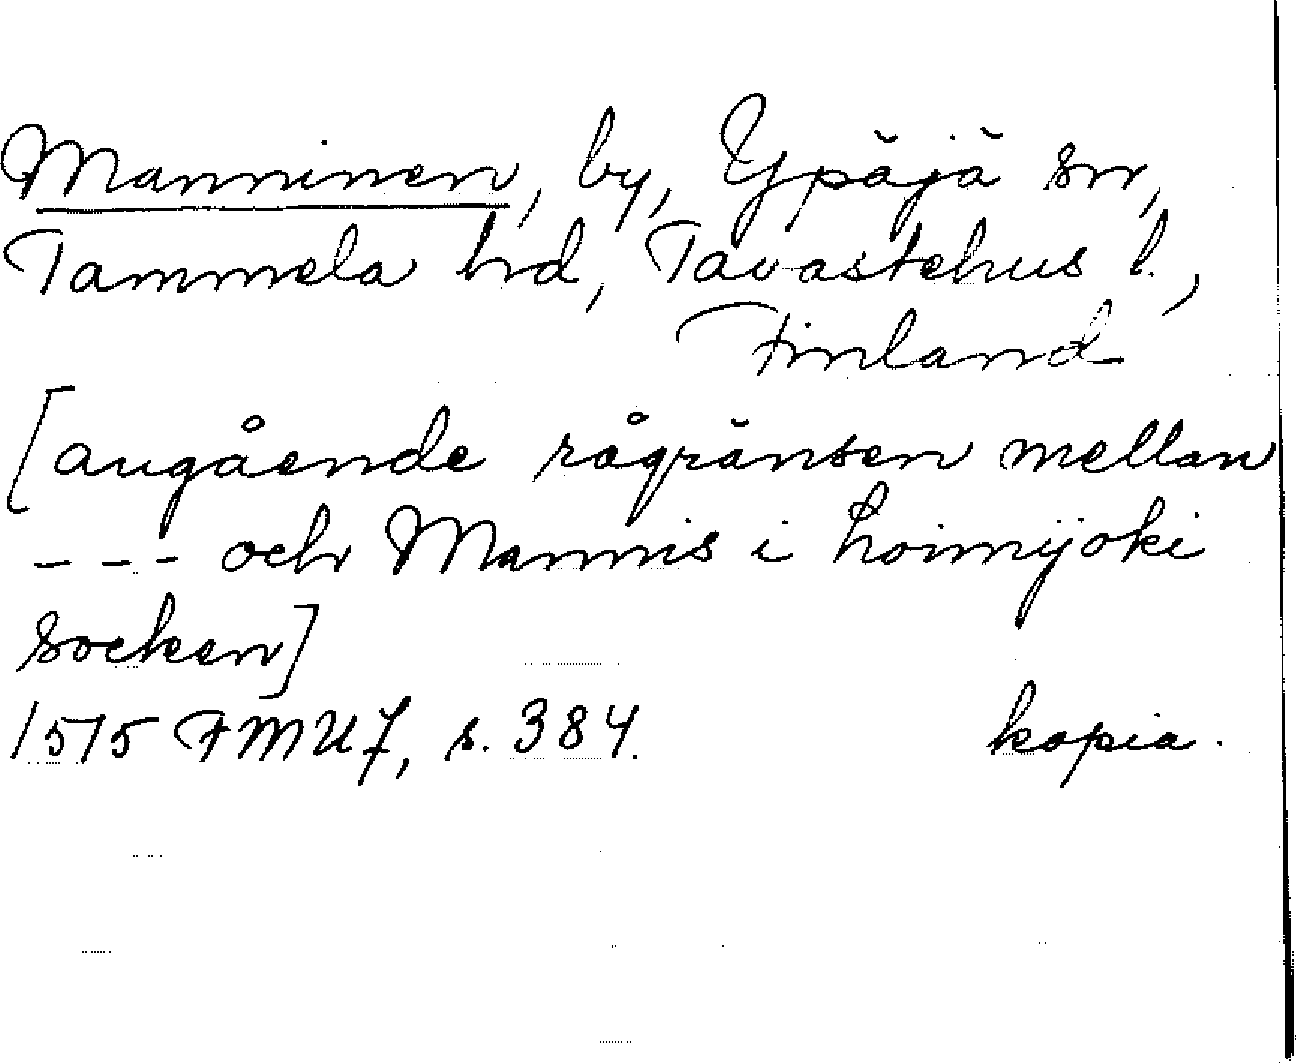 Manninen, by, Ypäjä sn,
Tammela hd, Tavastehus l.,
Finland
[angående rågränsen mellan
--- och Mannis i Loimijoki
socken]
1575 FMU 7, s. 384. kopia.